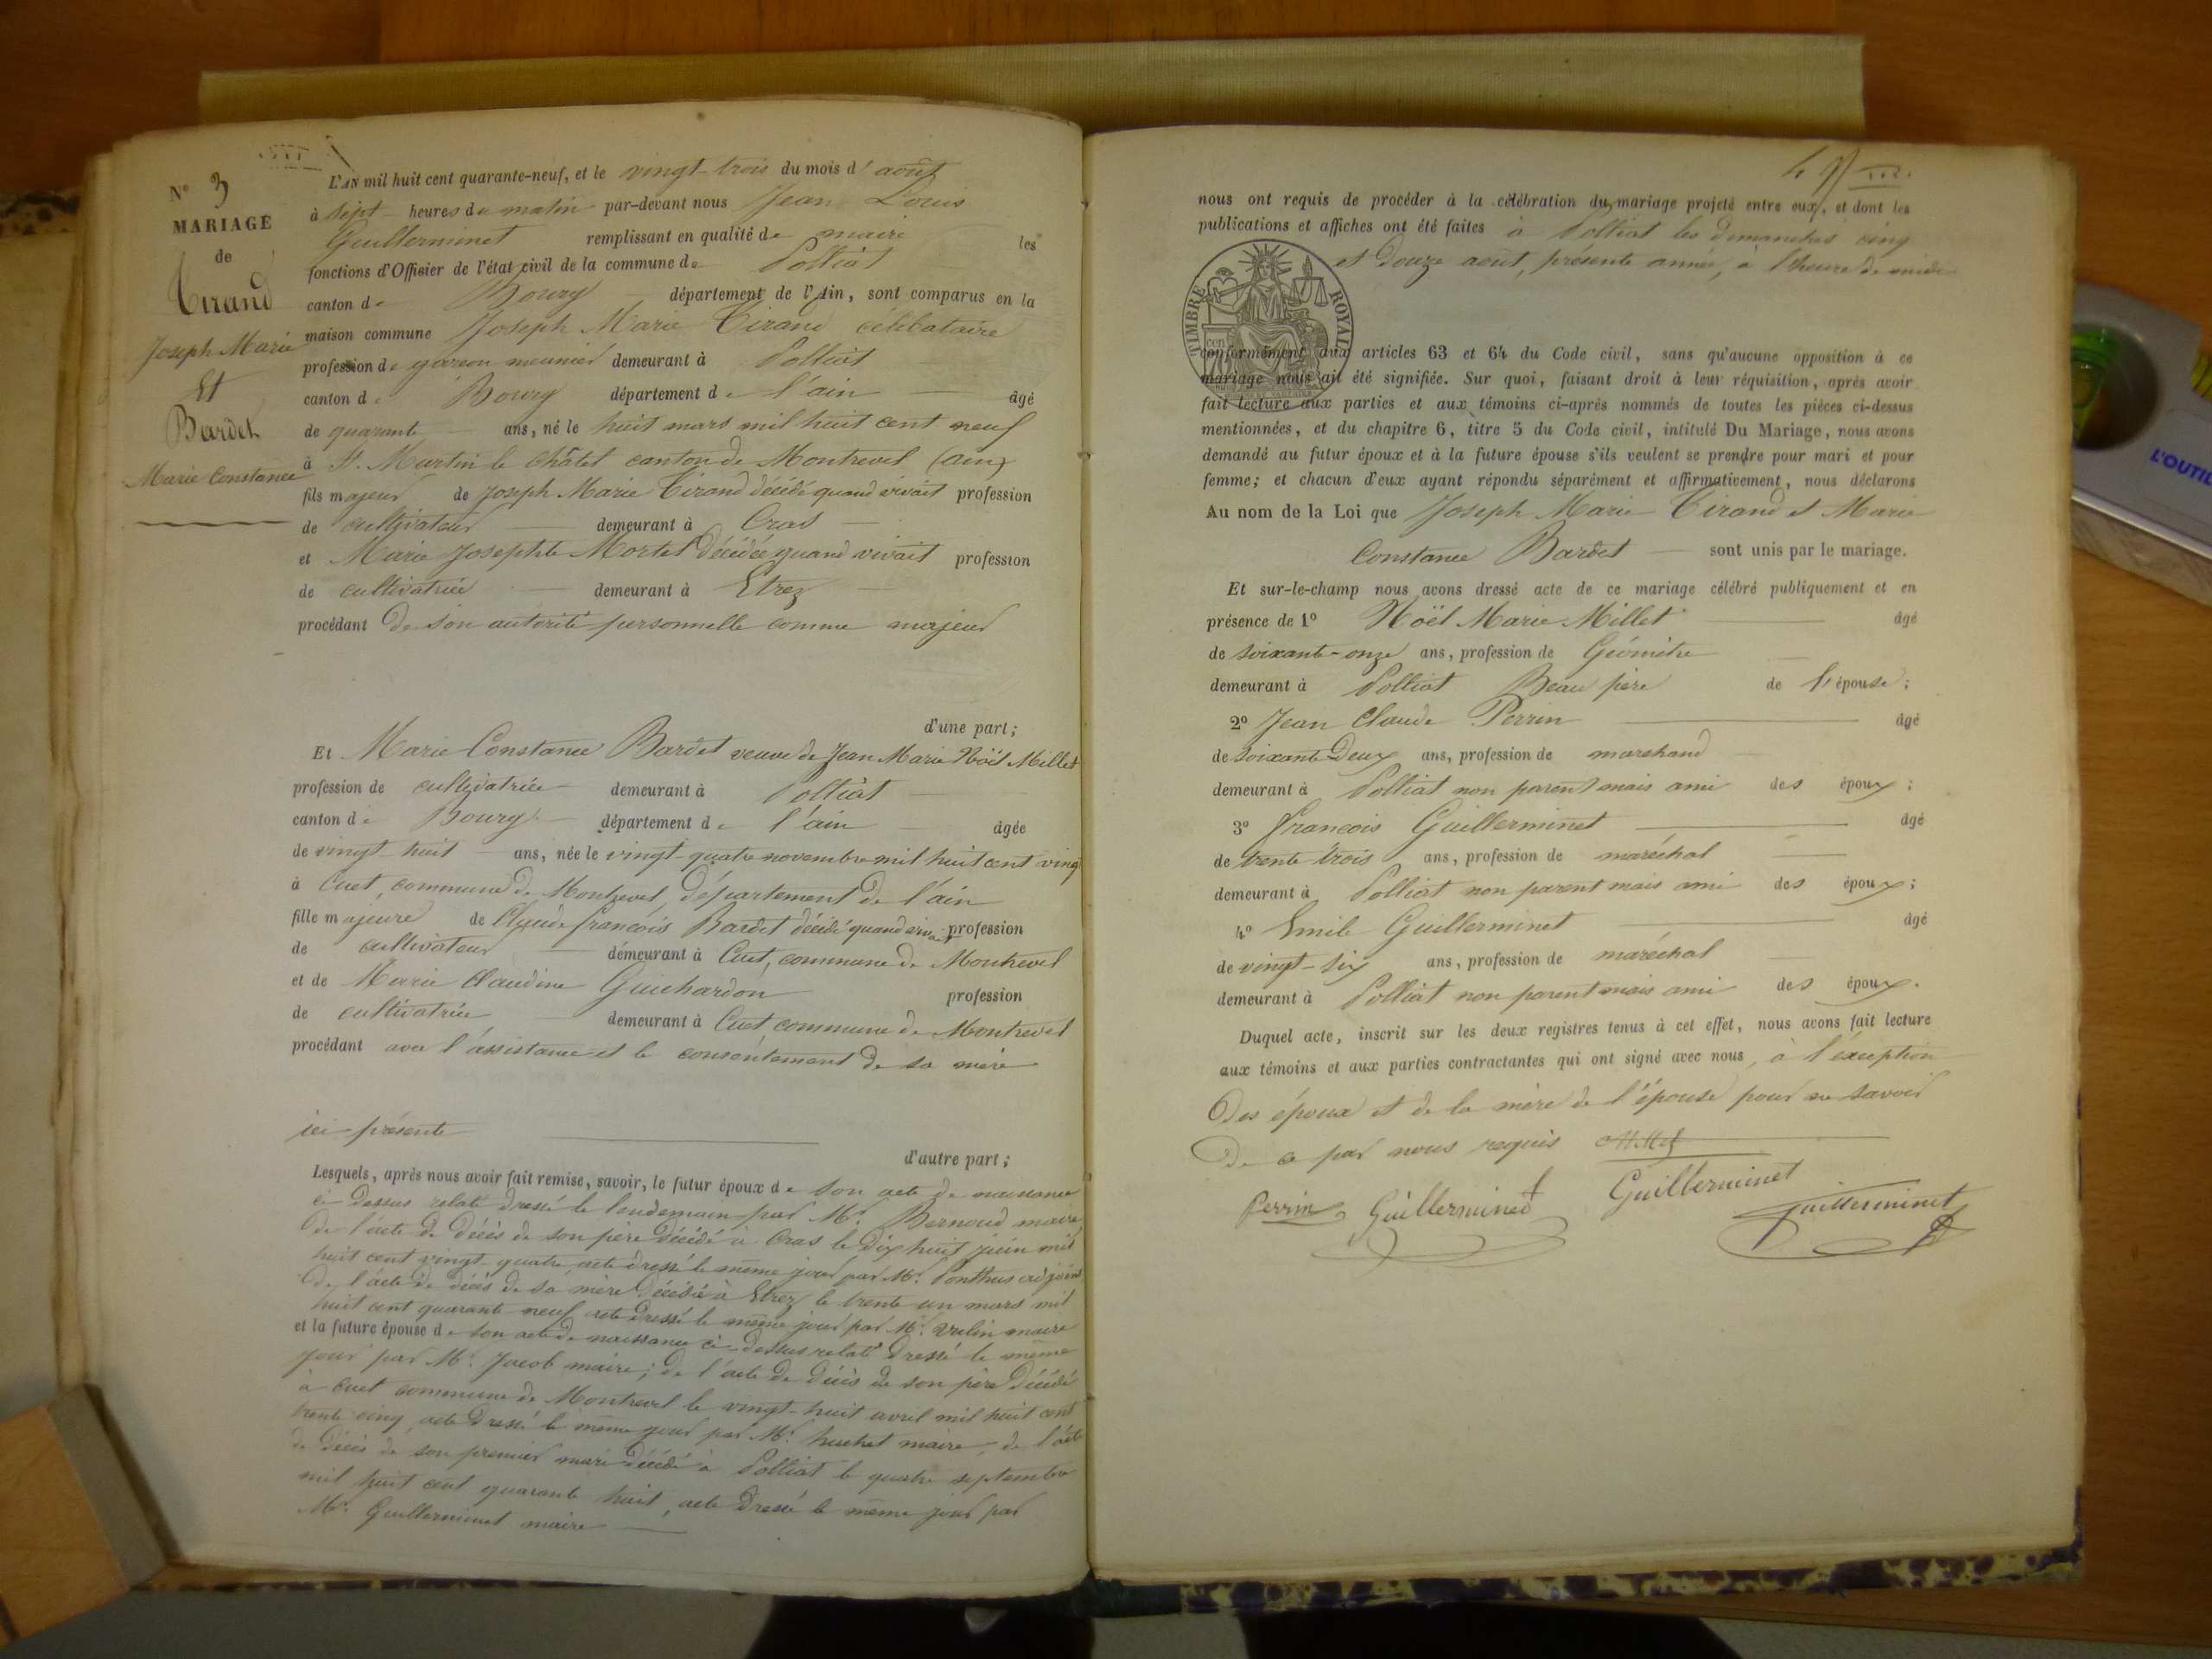 N° 3
MARIAGE
de
Tirand
Joseph Marie
Et
Bardet
Marie Constance
L'AN mil huit cent quarante-neuf, et le vingt-trois du mois d'août
à sept heures du matin par-devant nous Jean Louis
Guillerminet remplissant en qualité de maire les
fonctions d'Officier de l'état civil de la commune de Polliat
canton de Bourg département de l'Ain, sont comparus en la
maison commune Joseph Marie Tirand célibataire
profession de garçon meunier demeurant à Polliat
canton de Bourg département de l'ain âgé
de quarante ans, né le huit mars mil huit cent neuf
à St. Martin le châtel canton de Montrevel (ain)
fils majeur de Joseph Marie Tirand décédé quand vivait profession
de cultivateur demeurant à Cras
et Marie Josephte Mortel décédée quand vivait profession
de cultivatrice demeurant à Etrez
procédant de son autorité personnelle comme majeur
d'une part;
Et Marie Constance Bardet veuve de Jean Marie Noël Millet
profession de cultivatrice demeurant à Polliat
canton de Bourg département de l'ain âgée
de vingt-huit ans, née le vingt-quatre novembre mil huit cent vingt
à Cuet, commune de Montrevel, département de l'ain
fille majeure de Claude françois Bardet décédé quand vivait profession
de cultivateur demeurant à Cuet, commune de Montrevel
et de Marie Claudine Guichardon profession
de cultivatrice demeurant à Cuet commune de Montrevel
procédant avec l'assistance et le consentement de sa mère
ici présente
d'autre part;
Lesquels, après nous avoir fait remise, savoir, le futur époux de son acte de naissance
ci-dessus relaté dressé le lendemain par Mr. Bernoud maire
de l'acte de décès de son père décédé à Cras le dix huit juin mil
huit cent vingt-quatre acte dressé le même jour par Mr. Ponthus adjoint
de l'acte de décès de sa mère décédée à Etrez le trente un mars mil
huit cent quarante-neuf acte dressé le même jour par Mr. Vulin maire
et la future épouse de son acte de naissance ci-dessus relaté dressé le même
jour par Mr. Jacob maire; de l'acte de décès de son père décédé
à Cuet commune de Montrevel le vingt-huit avril mil huit cent
trente cinq, acte dressé le même jour par Mr. huchet maire, de l'acte
de décès de son premier mari décédé à Polliat le quatre septembre
mil huit cent quarante huit, acte dressé le même jour par
Mr. Guillerminet maire
nous ont requis de procéder à la célébration du mariage projeté entre eux, et dont les
publications et affiches ont été faites à Polliat les dimanches cinq
et douze août, présente année, à l'heure de midi
TIMBRE ROYAL
conformément aux articles 63 et 64 du Code civil, sans qu'aucune opposition à ce
mariage nous ait été signifiée. Sur quoi, faisant droit à leur réquisition, après avoir
fait lecture aux parties et aux témoins ci-après nommés de toutes les pièces ci-dessus
mentionnées, et du chapitre 6, titre 5 du Code civil, intitulé Du Mariage, nous avons
demandé au futur époux et à la future épouse s'ils veulent se prendre pour mari et pour
femme; et chacun d'eux ayant répondu séparément et affirmativement, nous déclarons
Au nom de la Loi que Joseph Marie Tirand et Marie
Constance Bardet sont unis par le mariage.
Et sur-le-champ nous avons dressé acte de ce mariage célébré publiquement et en
présence de 1° Noël Marie Millet âgé
de soixante-onze ans, profession de Géomètre
demeurant à Polliat Beau père de l'épouse;
2° Jean Claude Perrin âgé
de soixante-Deux ans, profession de marchand
demeurant à Polliat non parent mais ami des époux;
3° françois Guillerminet âgé
de trente trois ans, profession de maréchal
demeurant à Polliat non parent mais ami des époux;
4° Emile Guillerminet âgé
de vingt-six ans, profession de maréchal
demeurant à Polliat non parent mais ami des époux.
Duquel acte, inscrit sur les deux registres tenus à cet effet, nous avons fait lecture
aux témoins et aux parties contractantes qui ont signé avec nous, à l'éxception
Des époux et de la mère de l'épouse pour ne savoir
de ce par nous requis Millet
Perrin Guillerminet Guillerminet Guillerminet
L'OUTIL